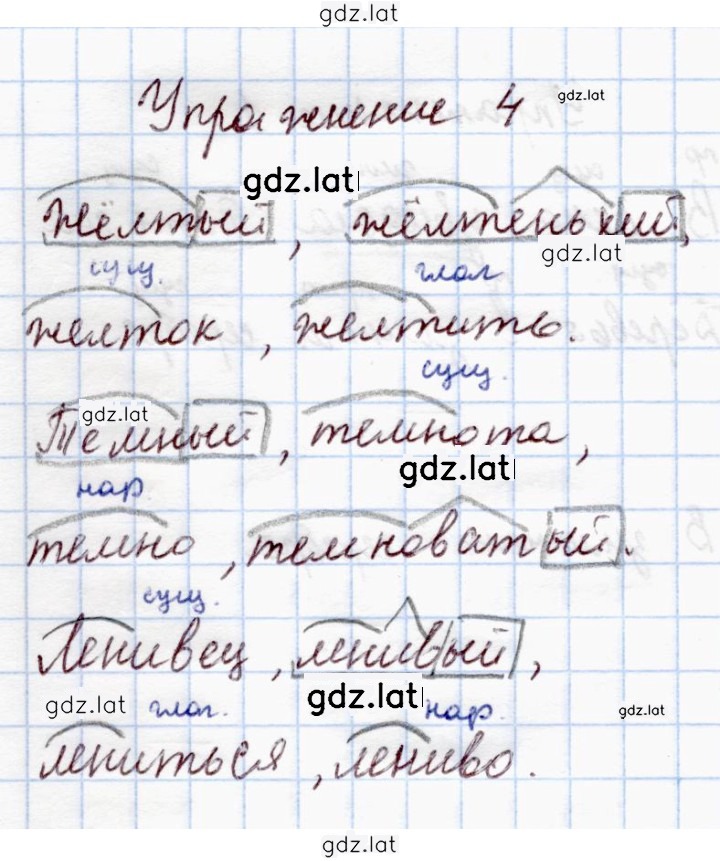 gdz.lat
Упражнение 4 gdz.lat
gdz.lat
жёлтый, жёлтенький,
gdz.lat
сущ. глол
желток, желтить.
сущ.
gdz.lat
Тёмный, темнота,
gdz.lat
нар.
темно, темноватый.
сущ.
Ленивец, ленивый,
gdz.lat глаг. gdz.lat нар. gdz.lat
лениться, лениво.
gdz.lat